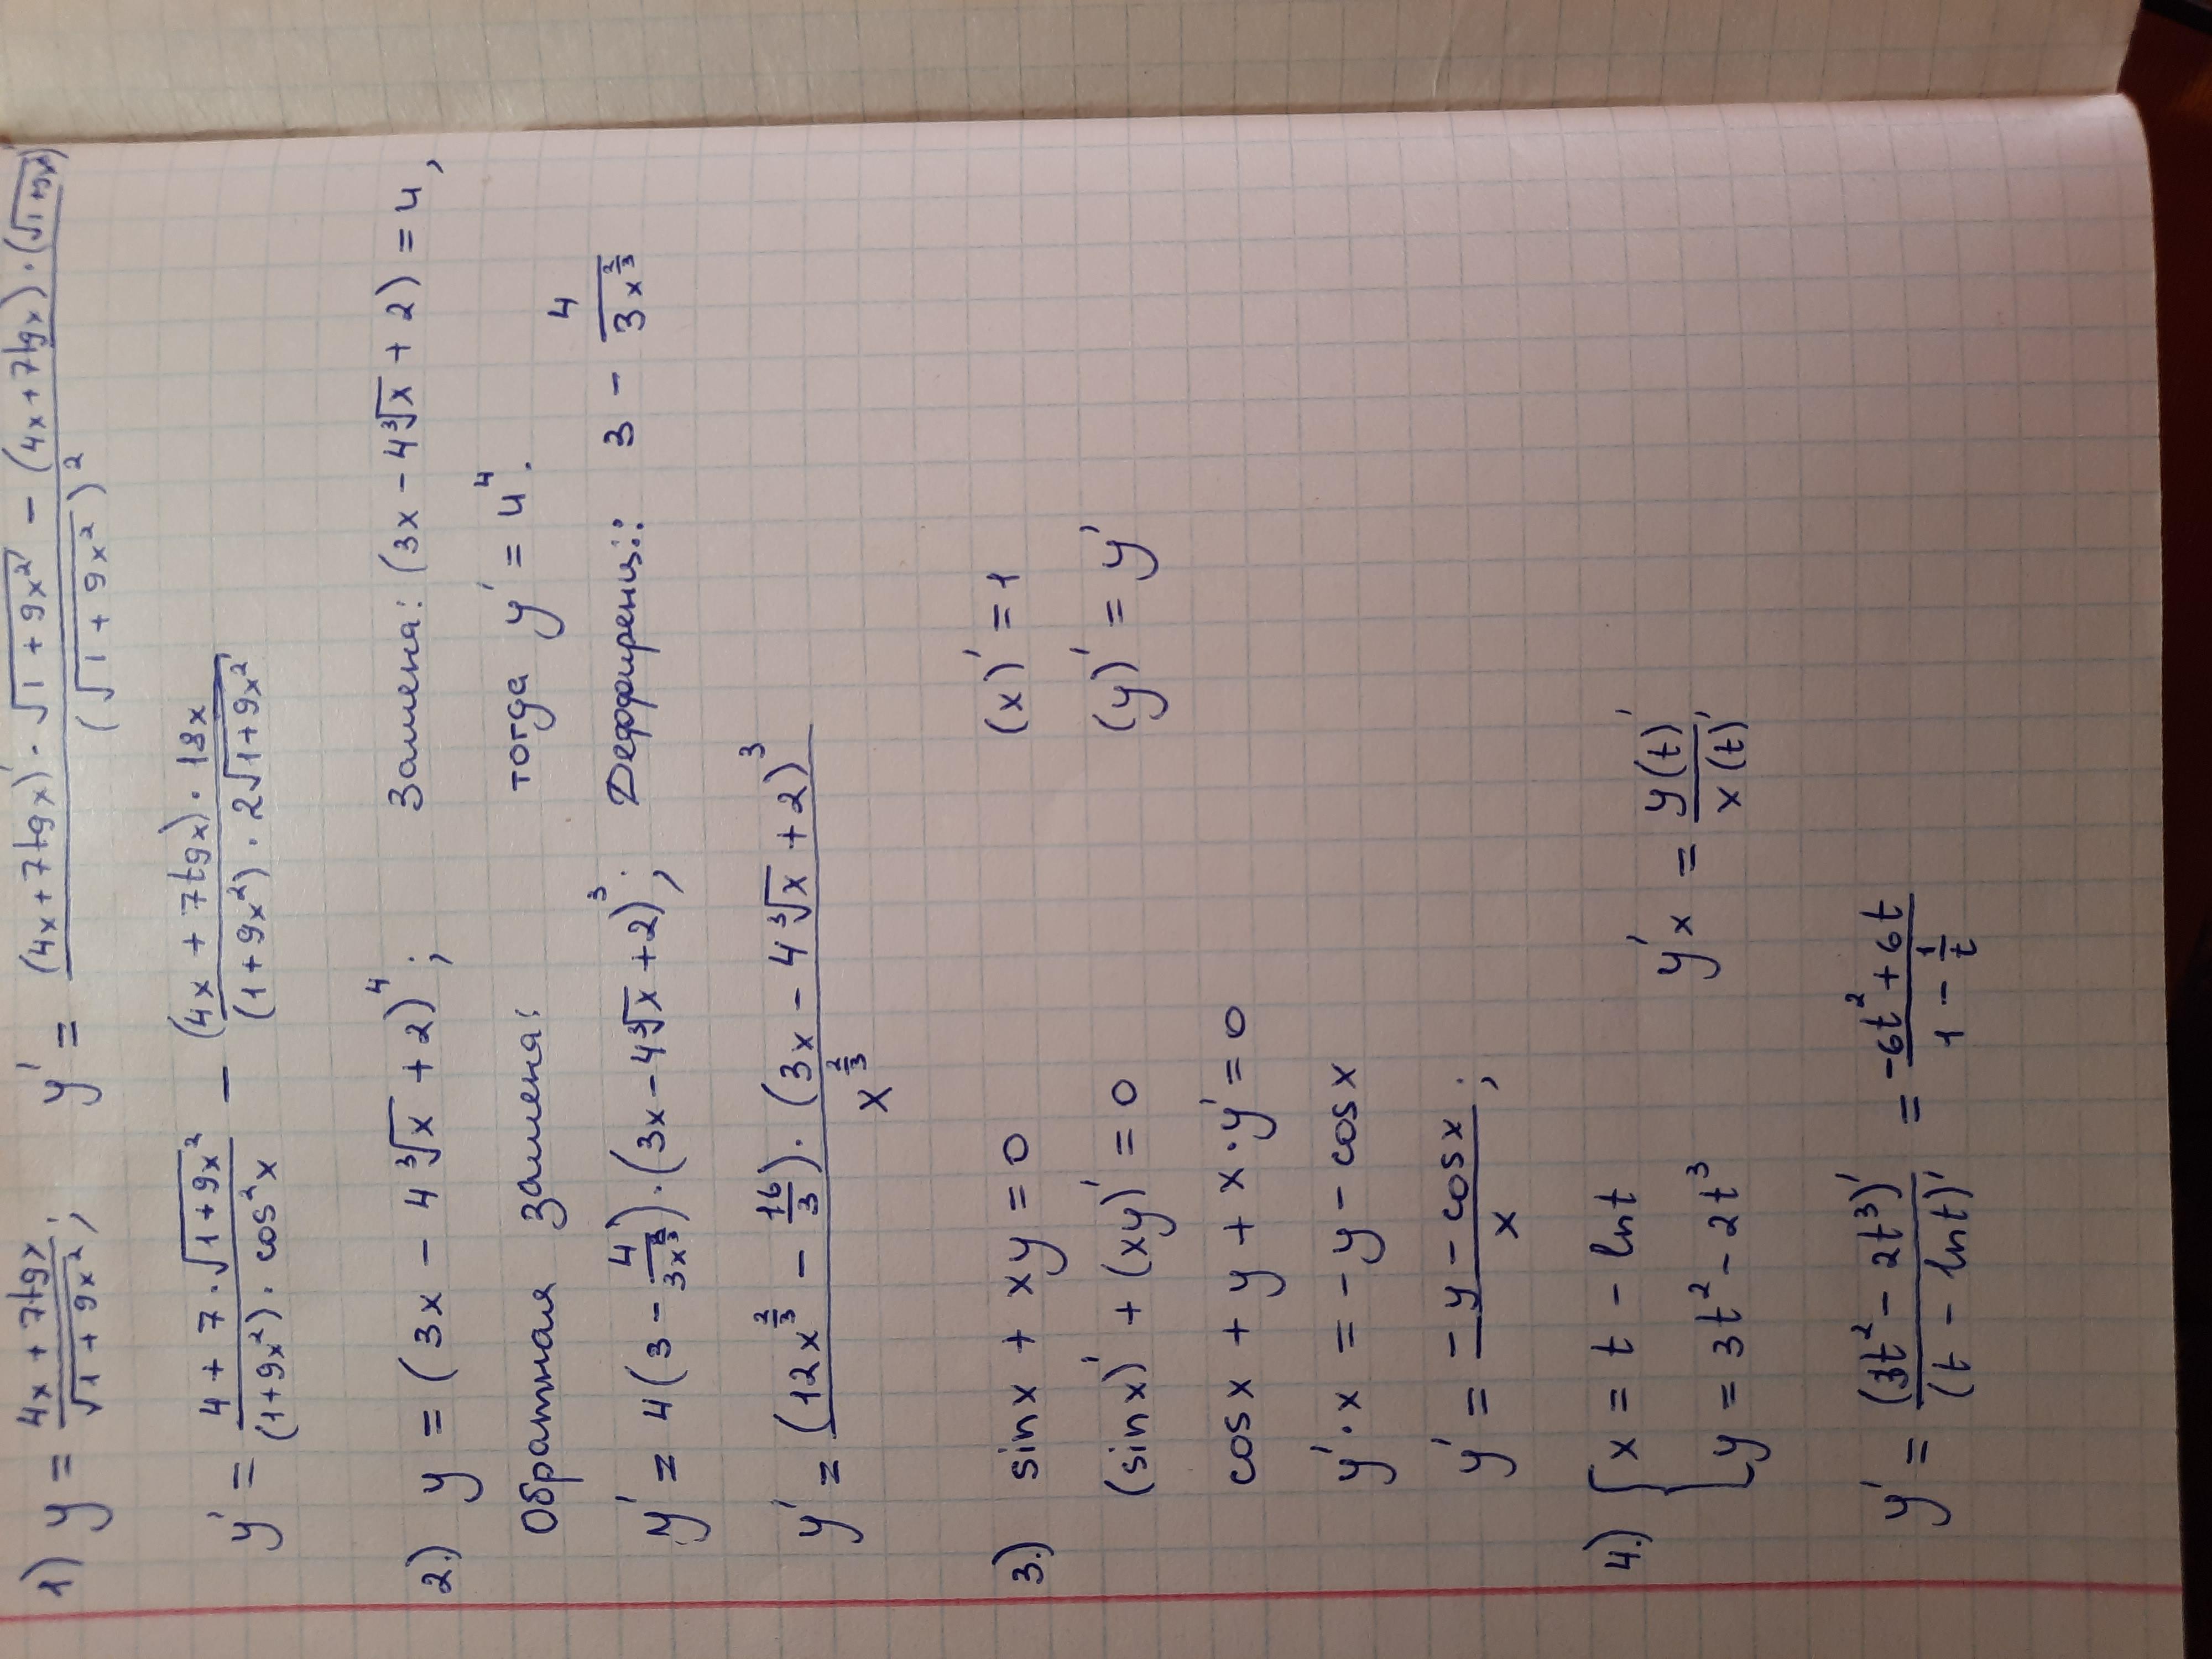 1) y = (4x + 7tgx)/(√(1 + 9x²)); y' = ((4x + 7tgx)' · √(1 + 9x²) − (4x + 7tgx) · (√(1 + 9x²))/((√(1 + 9x²))²)
y' = (4 + 7 · √(1+9x²))/((1+9x²) · cos²x) − ((4x + 7tgx) · 18x)/((1+9x²) · 2√(1+9x²))
2.) y = (3x − 4∛x + 2)⁴; Замена: (3x − 4∛x + 2) = u,
Обратная замена: тогда y' = u⁴.
y' = 4(3 − 4/(3x^(2/3))) · (3x − 4∛x + 2)³; Дефференц.: 3 − 4/(3x^(2/3))
y' = ((12x^(2/3) − 16/3) · (3x − 4∛x + 2)³)/(x^(2/3))
3.) sinx + xy = 0 (x)' = 1
(sinx)' + (xy)' = 0 (y)' = y'
cosx + y + x · y' = 0
y' · x = −y − cosx
y' = (−y − cosx)/x;
4.) { x = t − lnt y'x = y(t)'/x(t)'
y = 3t² − 2t³
y' = (3t² − 2t³)'/(t − lnt)' = (−6t² + 6t)/(1 − 1/t)